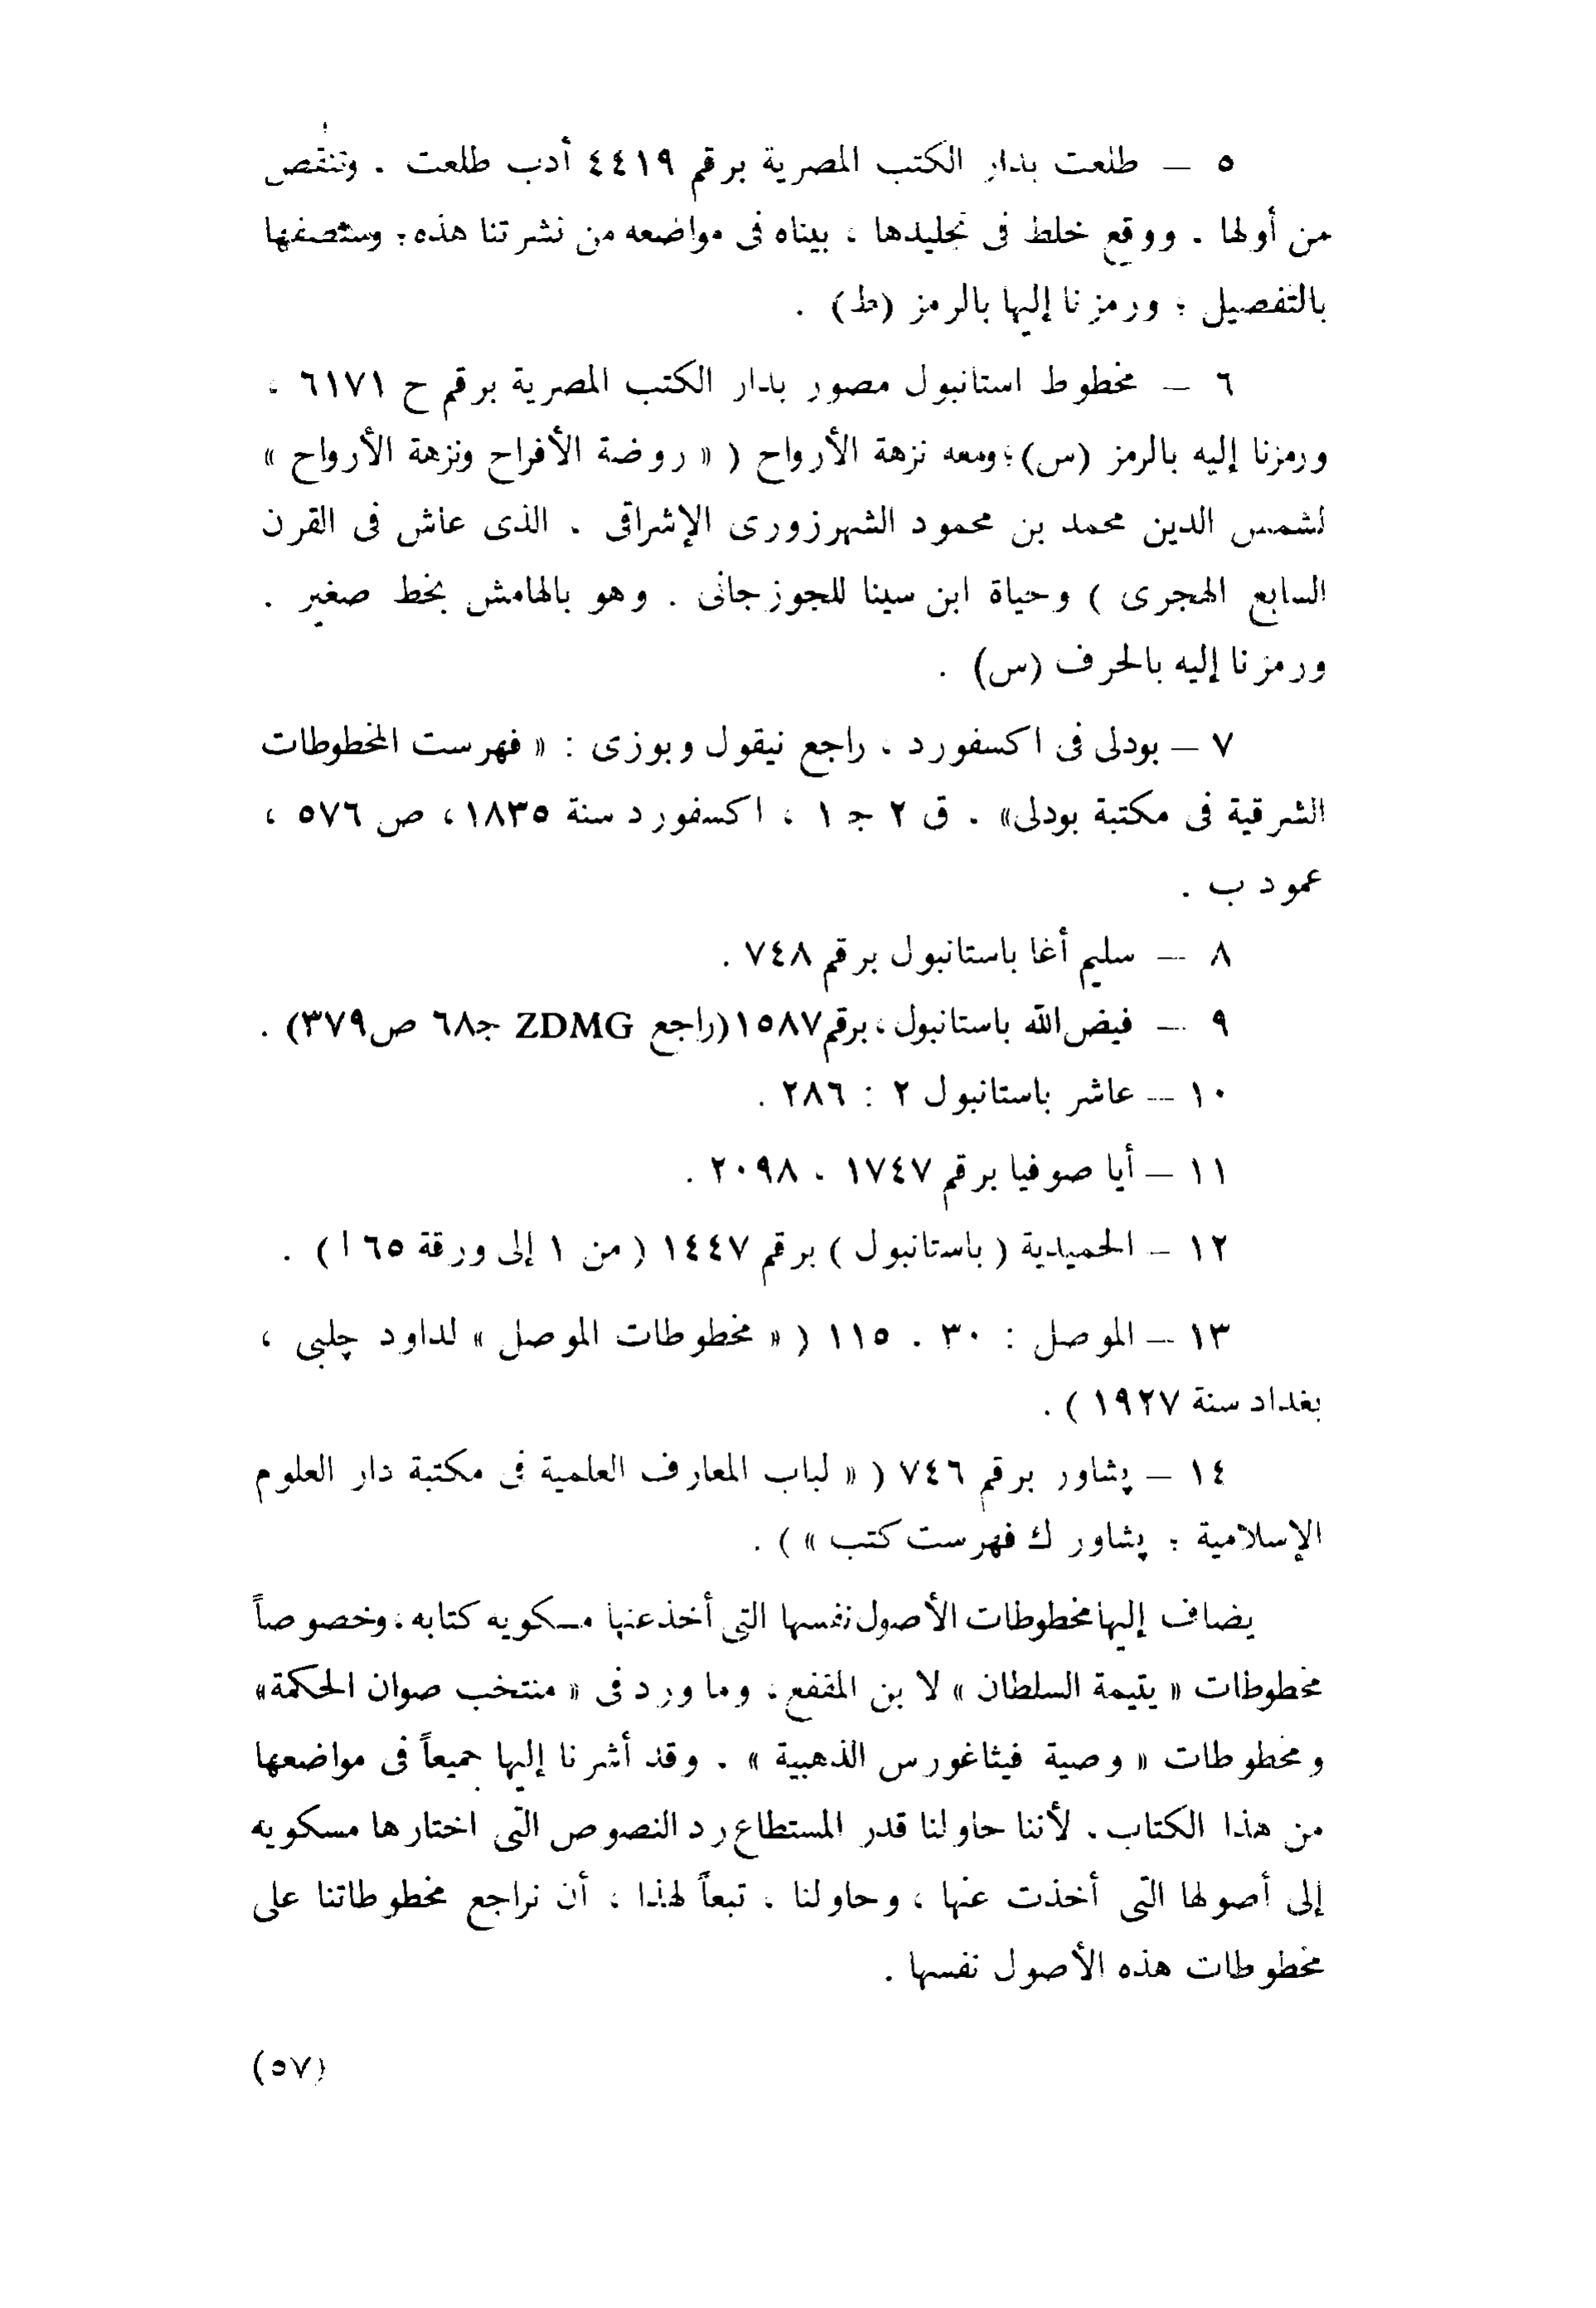 ٥ – طلعت بدار الكتب المصرية برقم ٤٤١٩ أدب طلعت . وتنقص
من أولها . ووقع خلط فى تجليدها ، بيناه فى مواضعه من نشرتنا هذه ؛ وسنصفها
بالتفصيل ؛ ورمزنا إليها بالرمز (ط) .
٦ – مخطوط استانبول مصور بدار الكتب المصرية برقم ح ٦١٧١ ،
ورمزنا إليه بالرمز (س) ؛ ومعه نزهة الأرواح ( « روضة الأفراح ونزهة الأرواح »
لشمس الدين محمد بن محمود الشهرزورى الإشراقى . الذى عاش فى القرن
السابع الهجرى ) وحياة ابن سينا للجوزجانى . وهو بالهامش بخط صغير .
ورمزنا إليه بالحرف (س) .
٧ – بودلى فى اكسفورد ، راجع نيقول وبوزى : « فهرست المخطوطات
الشرقية فى مكتبة بودلى» . ق ٢ ج ١ ، اكسفورد سنة ١٨٣٥ ، ص ٥٧٦ ،
عمود ب .
٨ – سليم أغا باستانبول برقم ٧٤٨ .
٩ – فيض الله باستانبول ، برقم ١٥٨٧ (راجع ZDMG ج٦٨ ص٣٧٩) .
١٠ – عاشر باستانبول ٢ : ٢٨٦ .
١١ – أيا صوفيا برقم ١٧٤٧ ، ٢٠٩٨ .
١٢ – الحميدية ( باستانبول ) برقم ١٤٤٧ ( من ١ إلى ورقة ٦٥ ا ) .
١٣ – الموصل : ٣٠ . ١١٥ ( « مخطوطات الموصل » لداود چلبى ،
بغداد سنة ١٩٢٧ ) .
١٤ – پشاور برقم ٧٤٦ ( « لباب المعارف العلمية فى مكتبة دار العلوم
الإسلامية ؛ پشاور ك فهرست كتب » ) .
يضاف إليها مخطوطات الأصول نفسها التى أخذ عنها مسكويه كتابه ، وخصوصاً
مخطوطات « يتيمة السلطان » لابن المقفع ، وما ورد فى « منتخب صوان الحكمة»
ومخطوطات « وصية فيثاغورس الذهبية » . وقد أشرنا إليها جميعاً فى مواضعها
من هذا الكتاب . لأننا حاولنا قدر المستطاع رد النصوص التى اختارها مسكويه
إلى أصولها التى أخذت عنها ، وحاولنا ، تبعاً لهذا ، أن نراجع مخطوطاتنا على
مخطوطات هذه الأصول نفسها .
(٥٧)